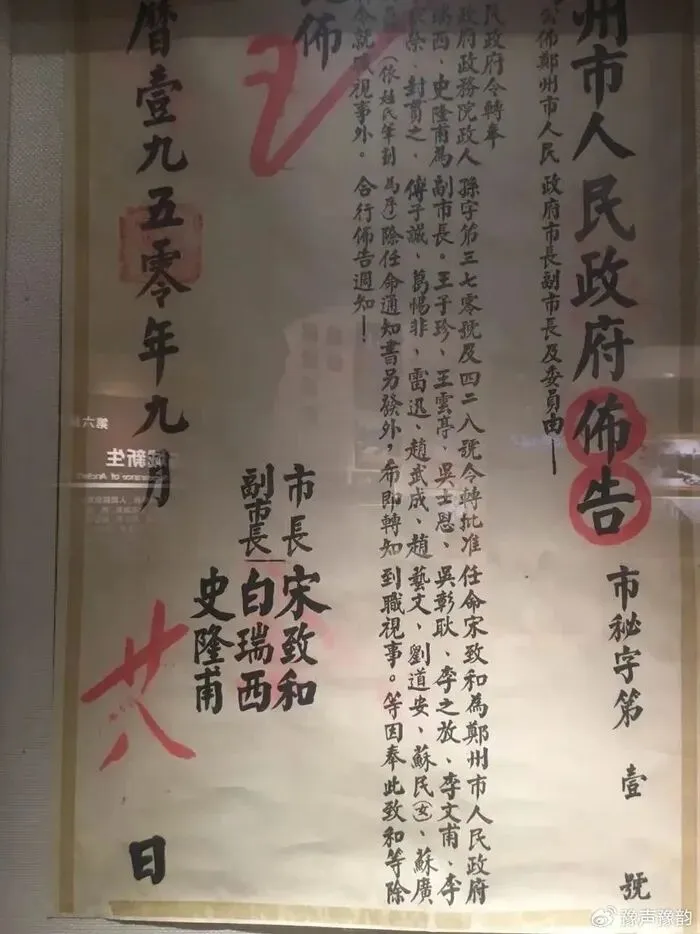 州市人民政府佈告 市秘字第壹號
公佈鄭州市人民政府市長副市長及委員由——
民政府令轉奉
政府政務院政人孫字第三七零號及四二八號令轉批准任命宋致和為鄭州市人民政府
瑞西、史隆甫為副市長。王子珍、王雲亭、吳士恩、吳彰耿、李之放、李文甫、李
除、封貫之、傅子誠、葛惕非、雷迅、趙武成、趙藝文、劉道安、蘇民(女)、蘇廣
(依姓氏筆劃為序)除任命通知書另發外,希即轉知到職視事。等因奉此致和等除
令就職視事外。合行佈告週知!
佈
市長 宋致和
副市長 白瑞西
史隆甫
曆壹九五零年九月廿八日
第六
新生
豫声豫韵